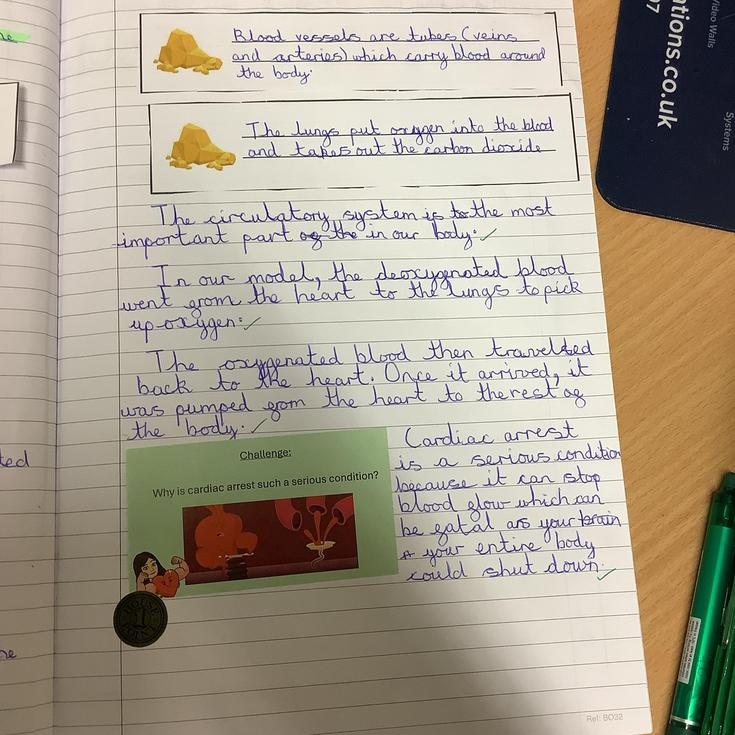 Blood vessels are tubes (veins
and arteries) which carry blood around
the body.
The lungs put oxygen into the blood
and takes out the carbon dioxide
The circulatory system is to the most
important part of the in our body.
In our model, the deoxygenated blood
went from the heart to the lungs to pick
up oxygen.
The oxygenated blood then travelled
back to the heart. Once it arrived, it
was pumped from the heart to the rest of
the body.
Challenge:
Why is cardiac arrest such a serious condition?
Cardiac arrest
is a serious condition
because it can stop
blood flow which can
be fatal as your brain
+ your entire body
could shut down.
HOUSE
1
POINT
Ref: BO32
ations.co.uk
Video Walls
Systems
ted